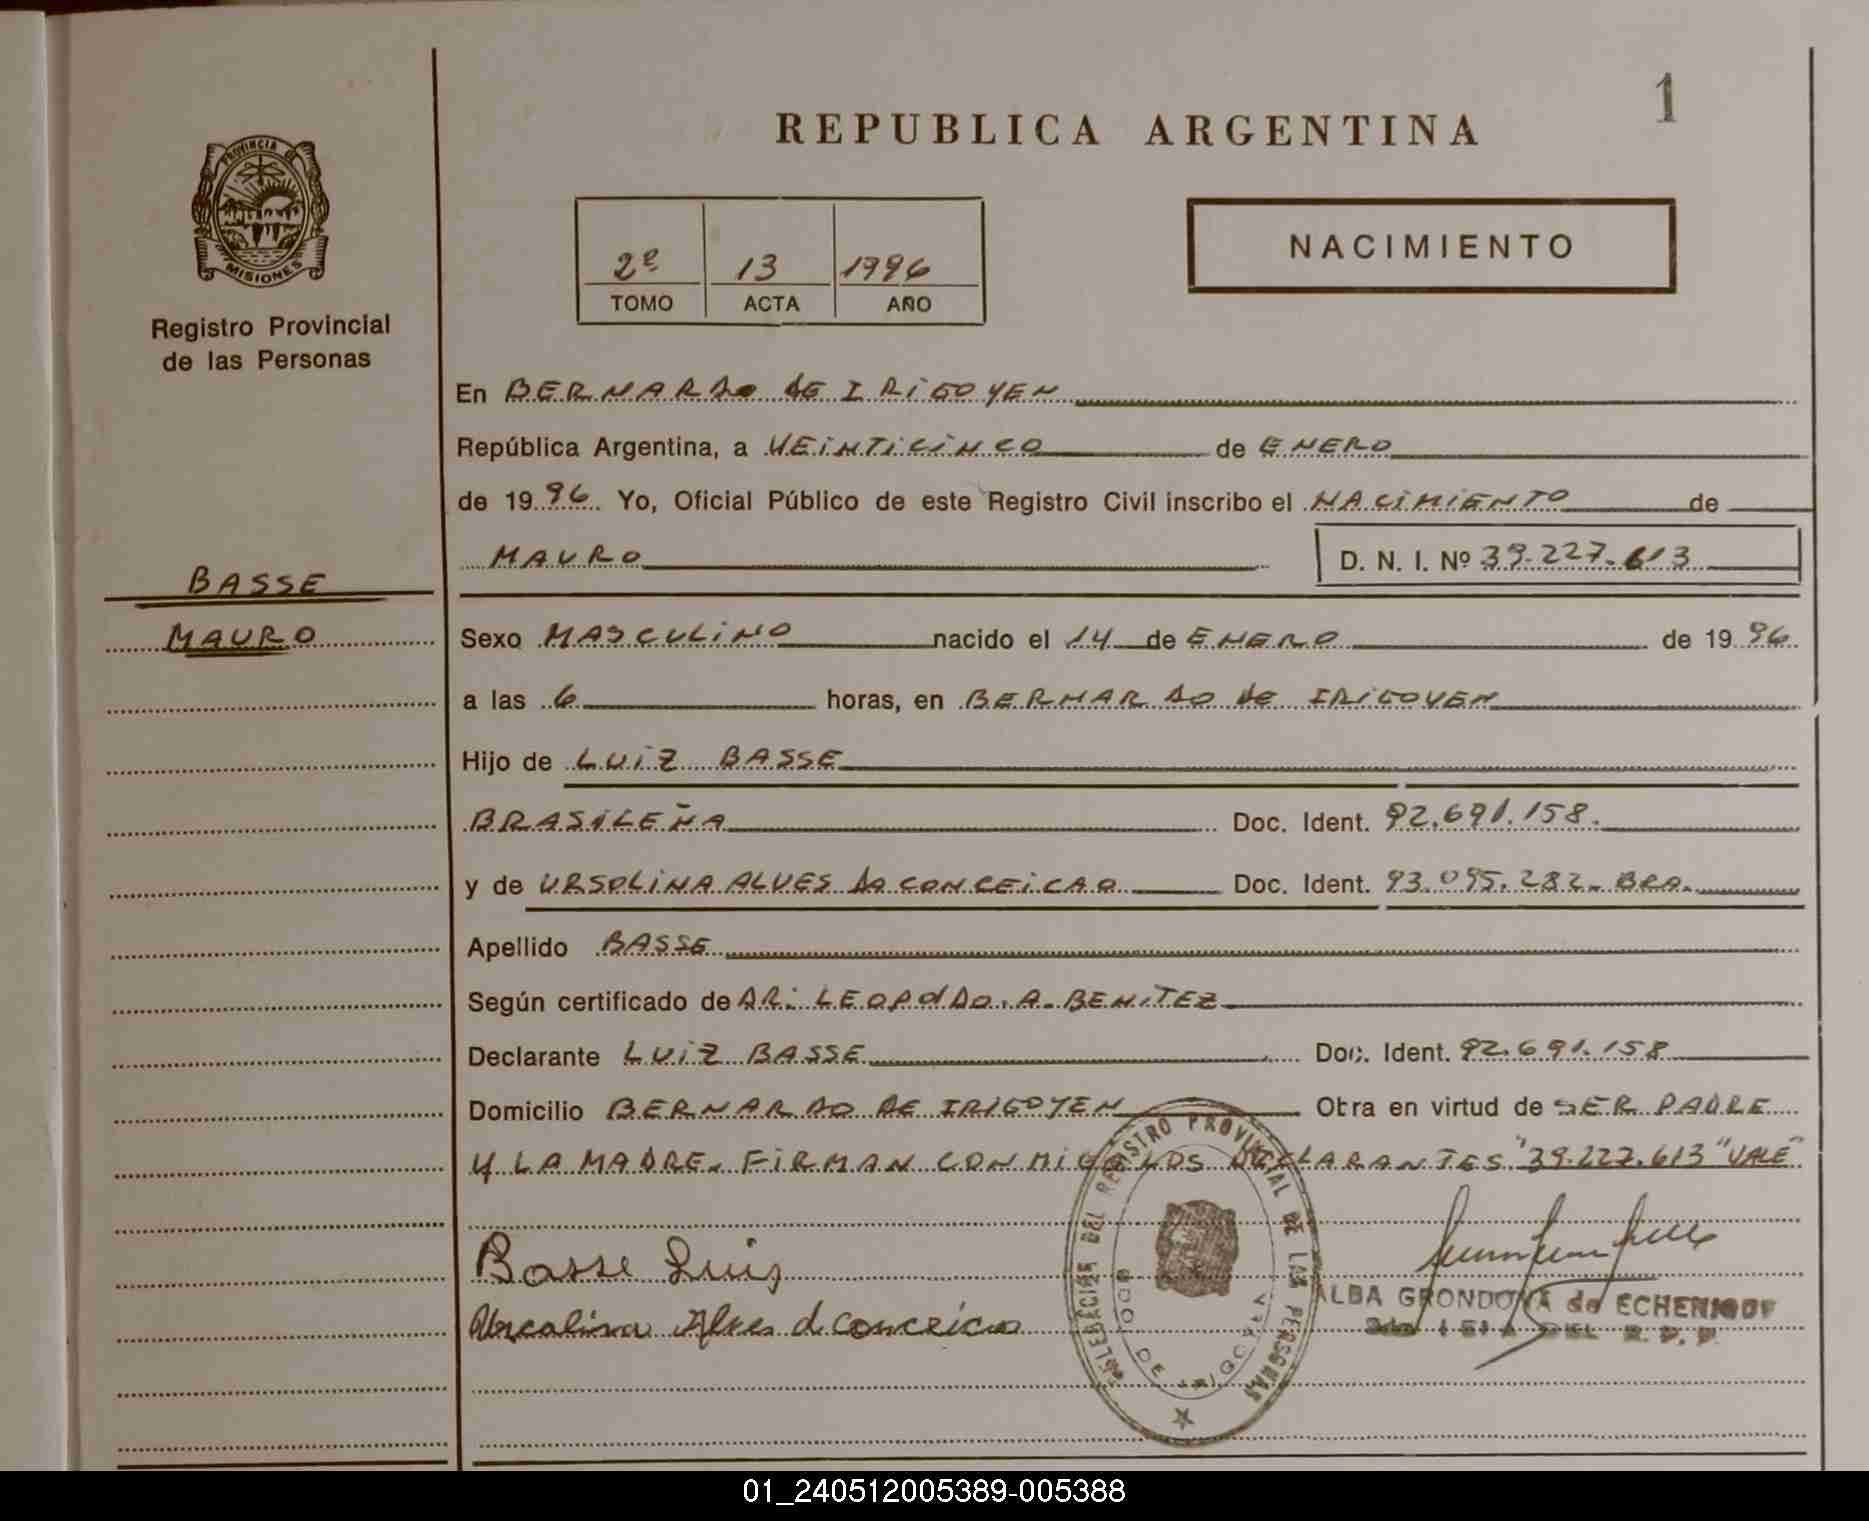 1
REPUBLICA ARGENTINA
PROVINCIA DE
MISIONES
Registro Provincial
de las Personas
2º 13 1996
TOMO ACTA AÑO
NACIMIENTO
En BERNARDO DE IRIGOYEN
República Argentina, a VEINTICINCO de ENERO
de 19 96 Yo, Oficial Público de este Registro Civil inscribo el NACIMIENTO de
MAURO D. N. I. Nº 39.227.613
BASSE
MAURO
Sexo MASCULINO nacido el 14 de ENERO de 19 96
a las 6 horas, en BERNARDO DE IRIGOYEN
Hijo de LUIZ BASSE
BRASILEÑA Doc. Ident. 92.691.158.
y de URSOLINA ALVES DA CONCEICAO Doc. Ident. 93.095.282. BRA.
Apellido BASSE
Según certificado de DR. LEOPOLDO. A. BENITEZ
Declarante LUIZ BASSE Doc. Ident. 92.691.158
Domicilio BERNARDO DE IRIGOYEN Obra en virtud de SER PADRE
Y LA MADRE. FIRMAN CONMIGO LOS DECLARANTES "39.227.613" VALE"
Basse Luiz
Alves d conceicao
DELEGACION DEL REGISTRO PROVINCIAL DE LAS PERSONAS
DE IRIGOY
ALBA GRONDONA de ECHENIQUE
DEL R. P. P.
01_240512005389-005388